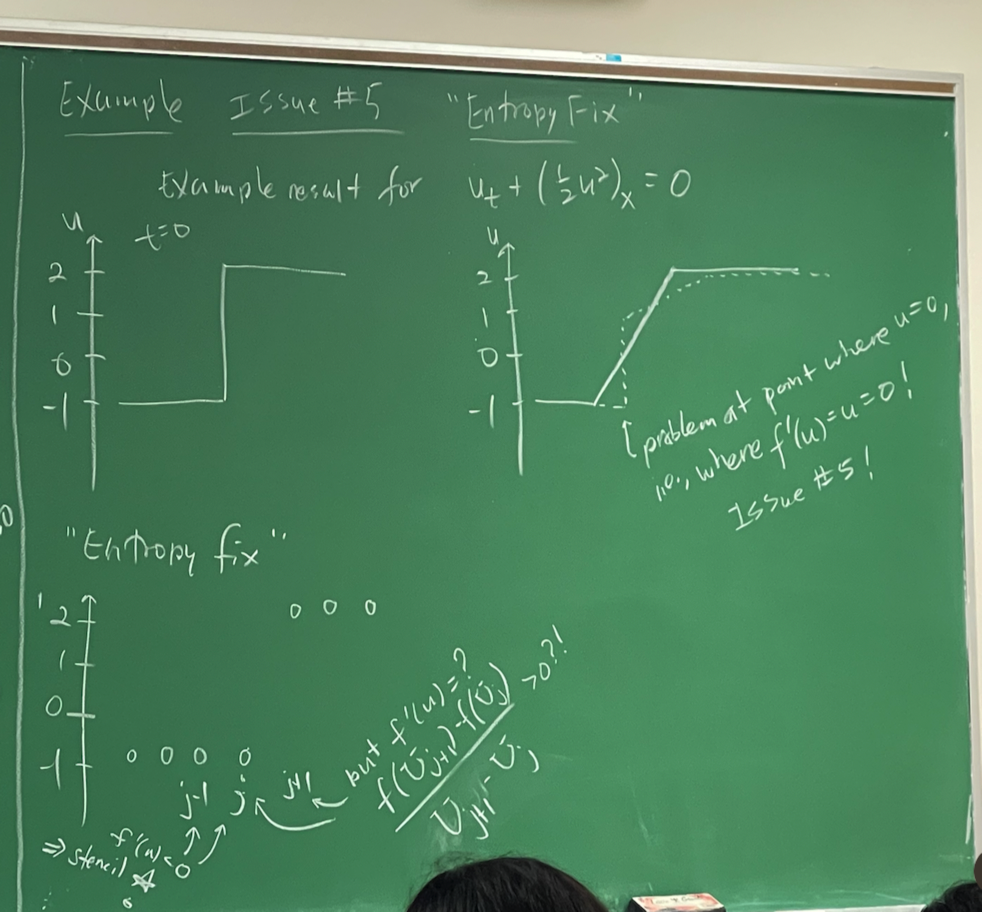 Example Issue #5 "Entropy Fix"
Example result for u_t + (½u²)_x = 0
u t=0
2
1
0
-1
u
2
1
0
-1
problem at point where u=0,
i.e., where f'(u)=u=0!
Issue #5!
"Entropy fix"
2
1
0
-1
j-1 j j+1
but f'(u)=?
f(U_{j+1})-f(U_j) >0?!
U_{j+1}-U_j
f'(u)<0
⇒ stencil